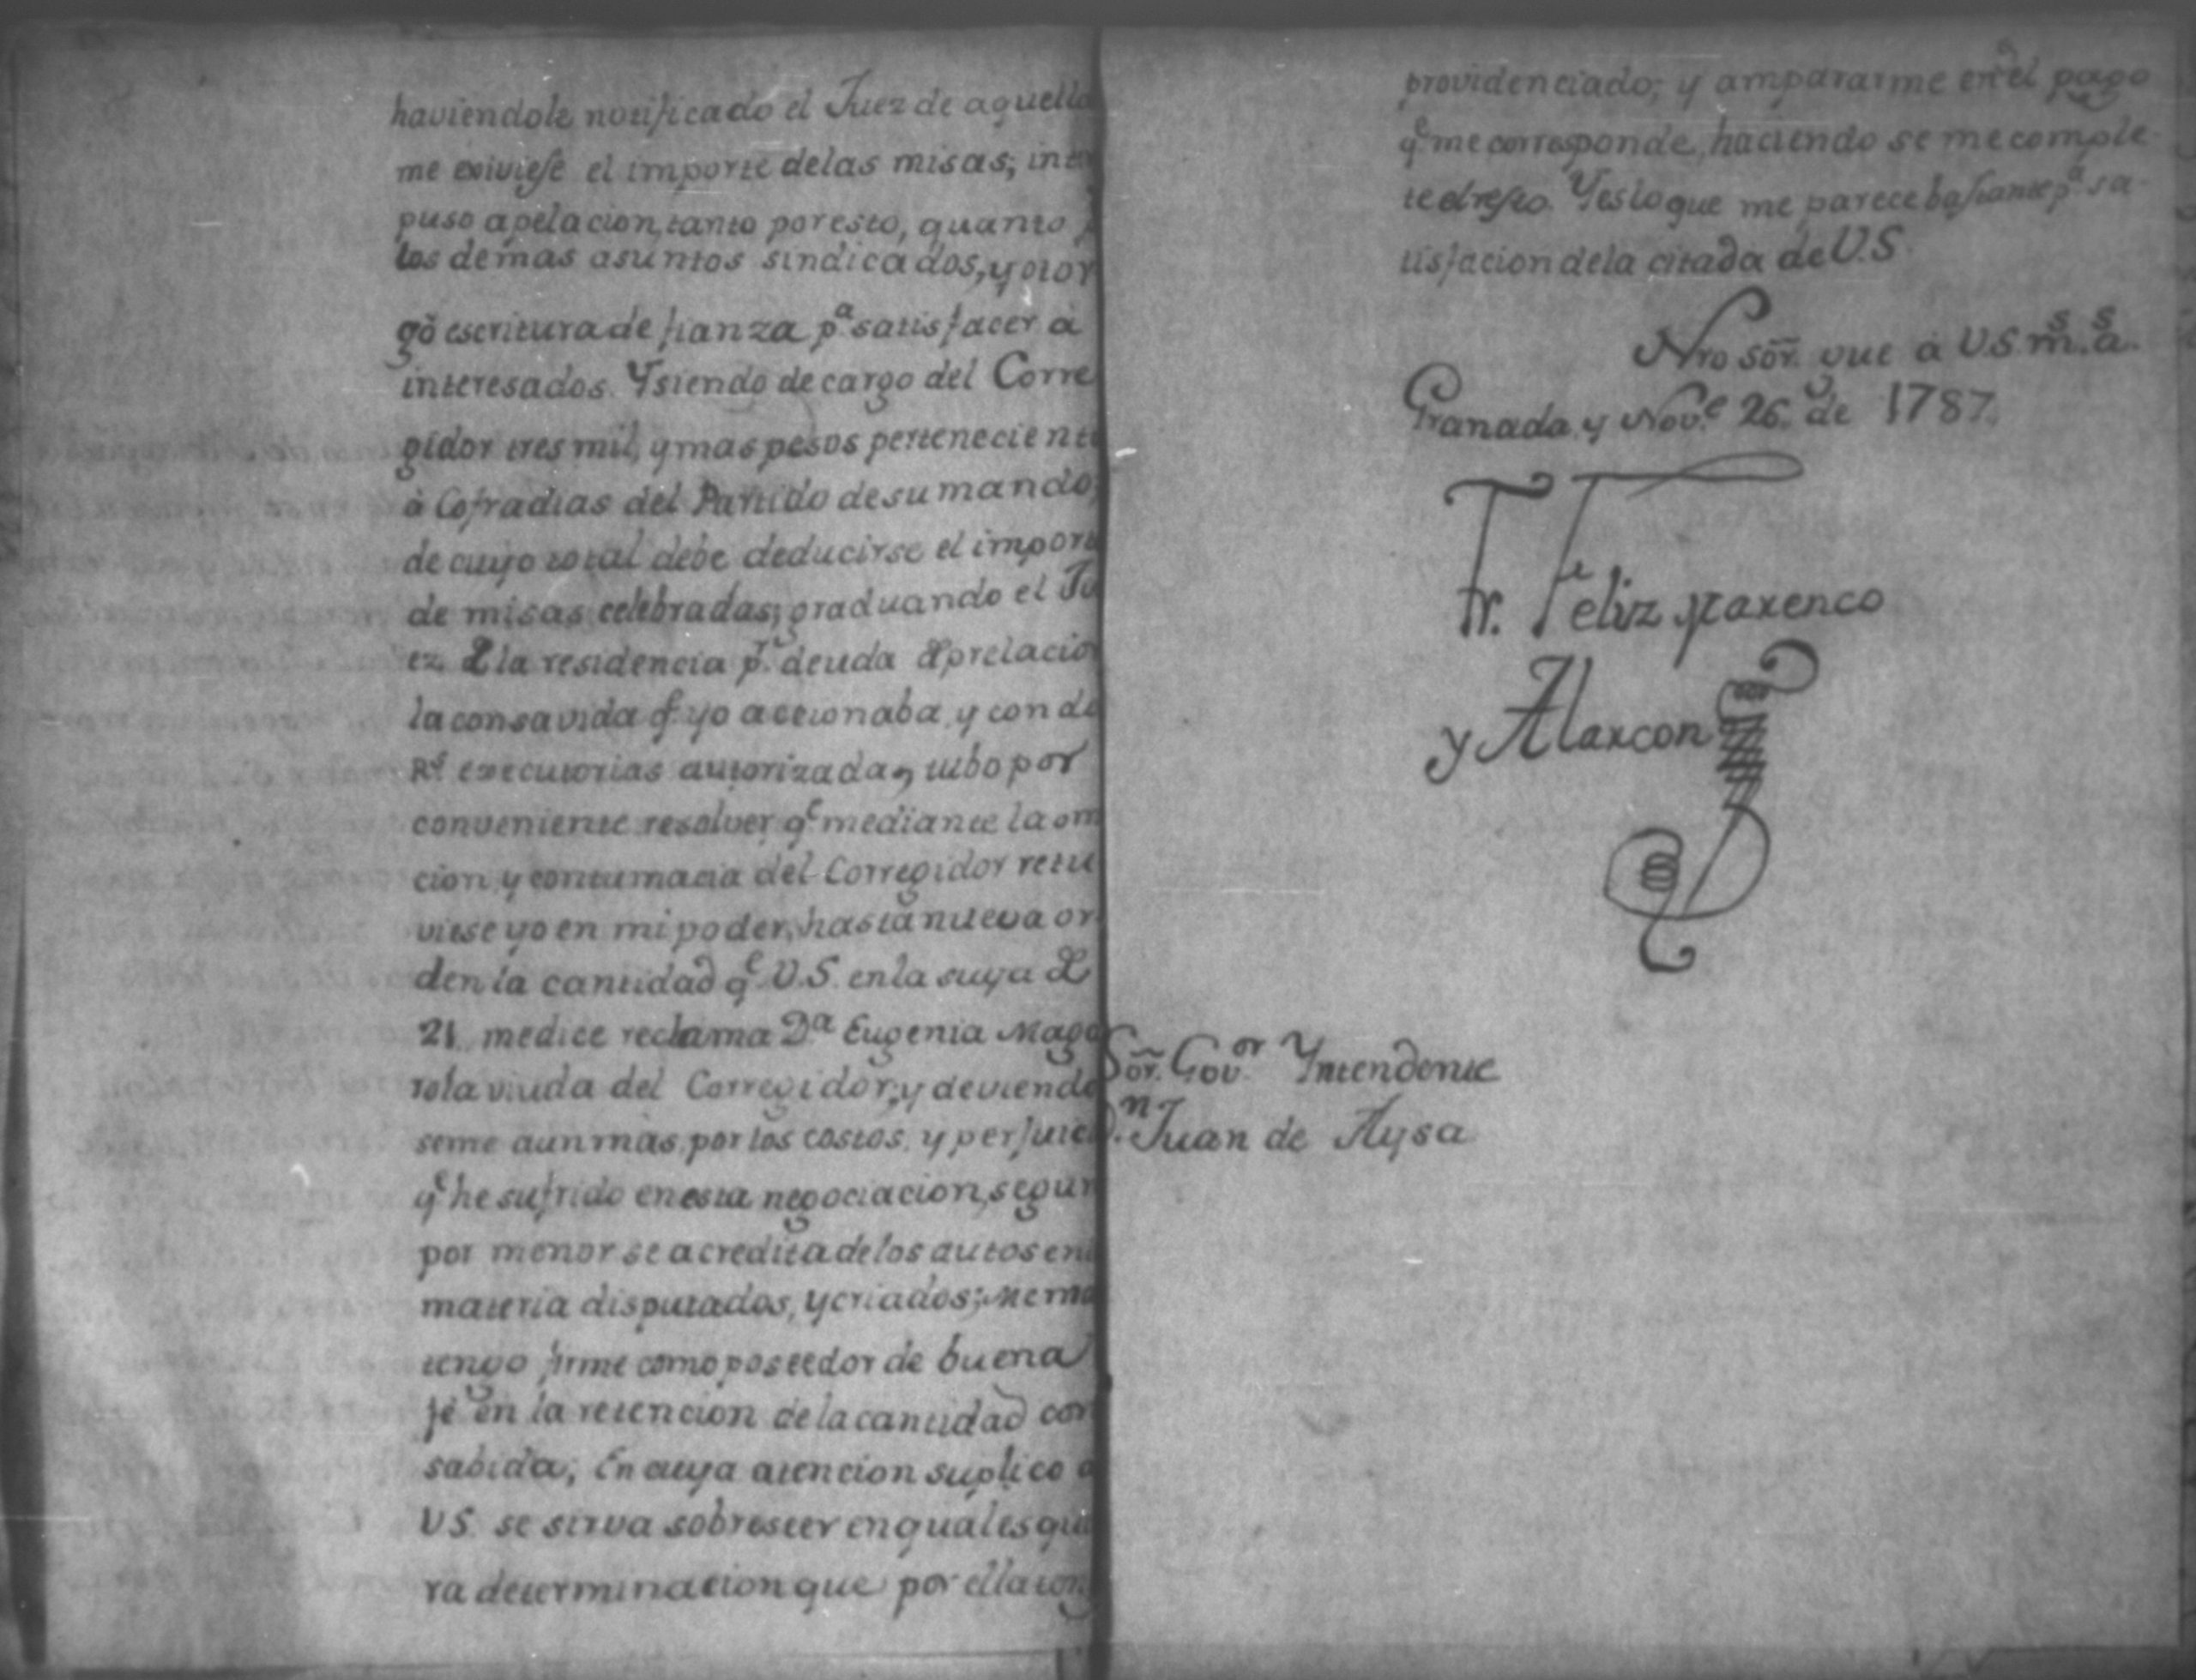 haviendole notificado el Juez de aquella
me exiviese el importe delas misas; inte
puso apelacion, tanto por esto, quanto p
los demas asuntos sindicados, y otor
gò escritura de fianza pª satisfacer à
interesados. Y siendo de cargo del Corre
gidor tres mil, y mas pesos perteneciente
à Cofradias del Partido de su mando,
de cuyo total debe deducirse el importe
de misas celebradas; graduando el Ju
ez de la residencia pr. deuda de prelacion
la consavida qe yo accionaba, y con de
Rs executorias autorizada, tubo por
conveniente resolver, qe mediante la om
cion, y contumacia del Corregidor retu
viese yo en mi poder, hasta nueva or
den la cantidad qe U.S. en la suya de
21. me dice reclama Dª Eugenia Maga
rola viuda del Corregidor, y deviendo
seme aun mas, por los costos, y perjuicio
qe he sufrido en esta negociacion, segun
por menor se acredita de los autos en
materia disputados, y criados; Me man
tengo firme como poseedor de buena
fè en la retencion de la cantidad con
sabida; En cuya atencion suplico a
US. se sirva sobreseer en qualesquie
ra determinacion que por ella tenga
providenciado; y ampararme en el pago
qe me corresponde, haciendo se me comple
te el resto. Y es lo que me parece bastante pª sa-
tisfacion de la citada de U.S.
Nro Sōr. gue à U.S. ms. as.
Granada, y Nove 26. de 1787.
Fr. Feliz
y Alarcon
Sōr. Govor Yntendente
Dn. Juan de Aysa